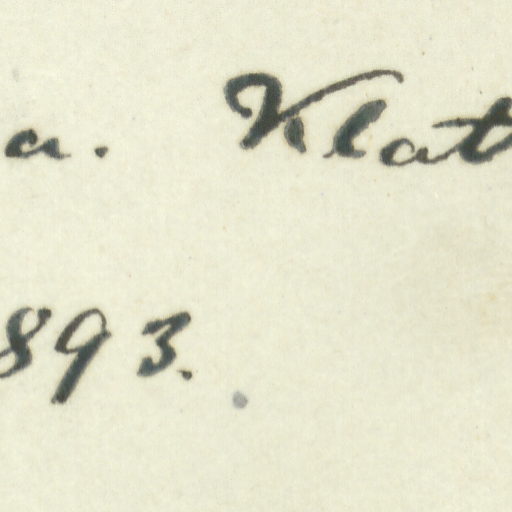 a. Klat
893.